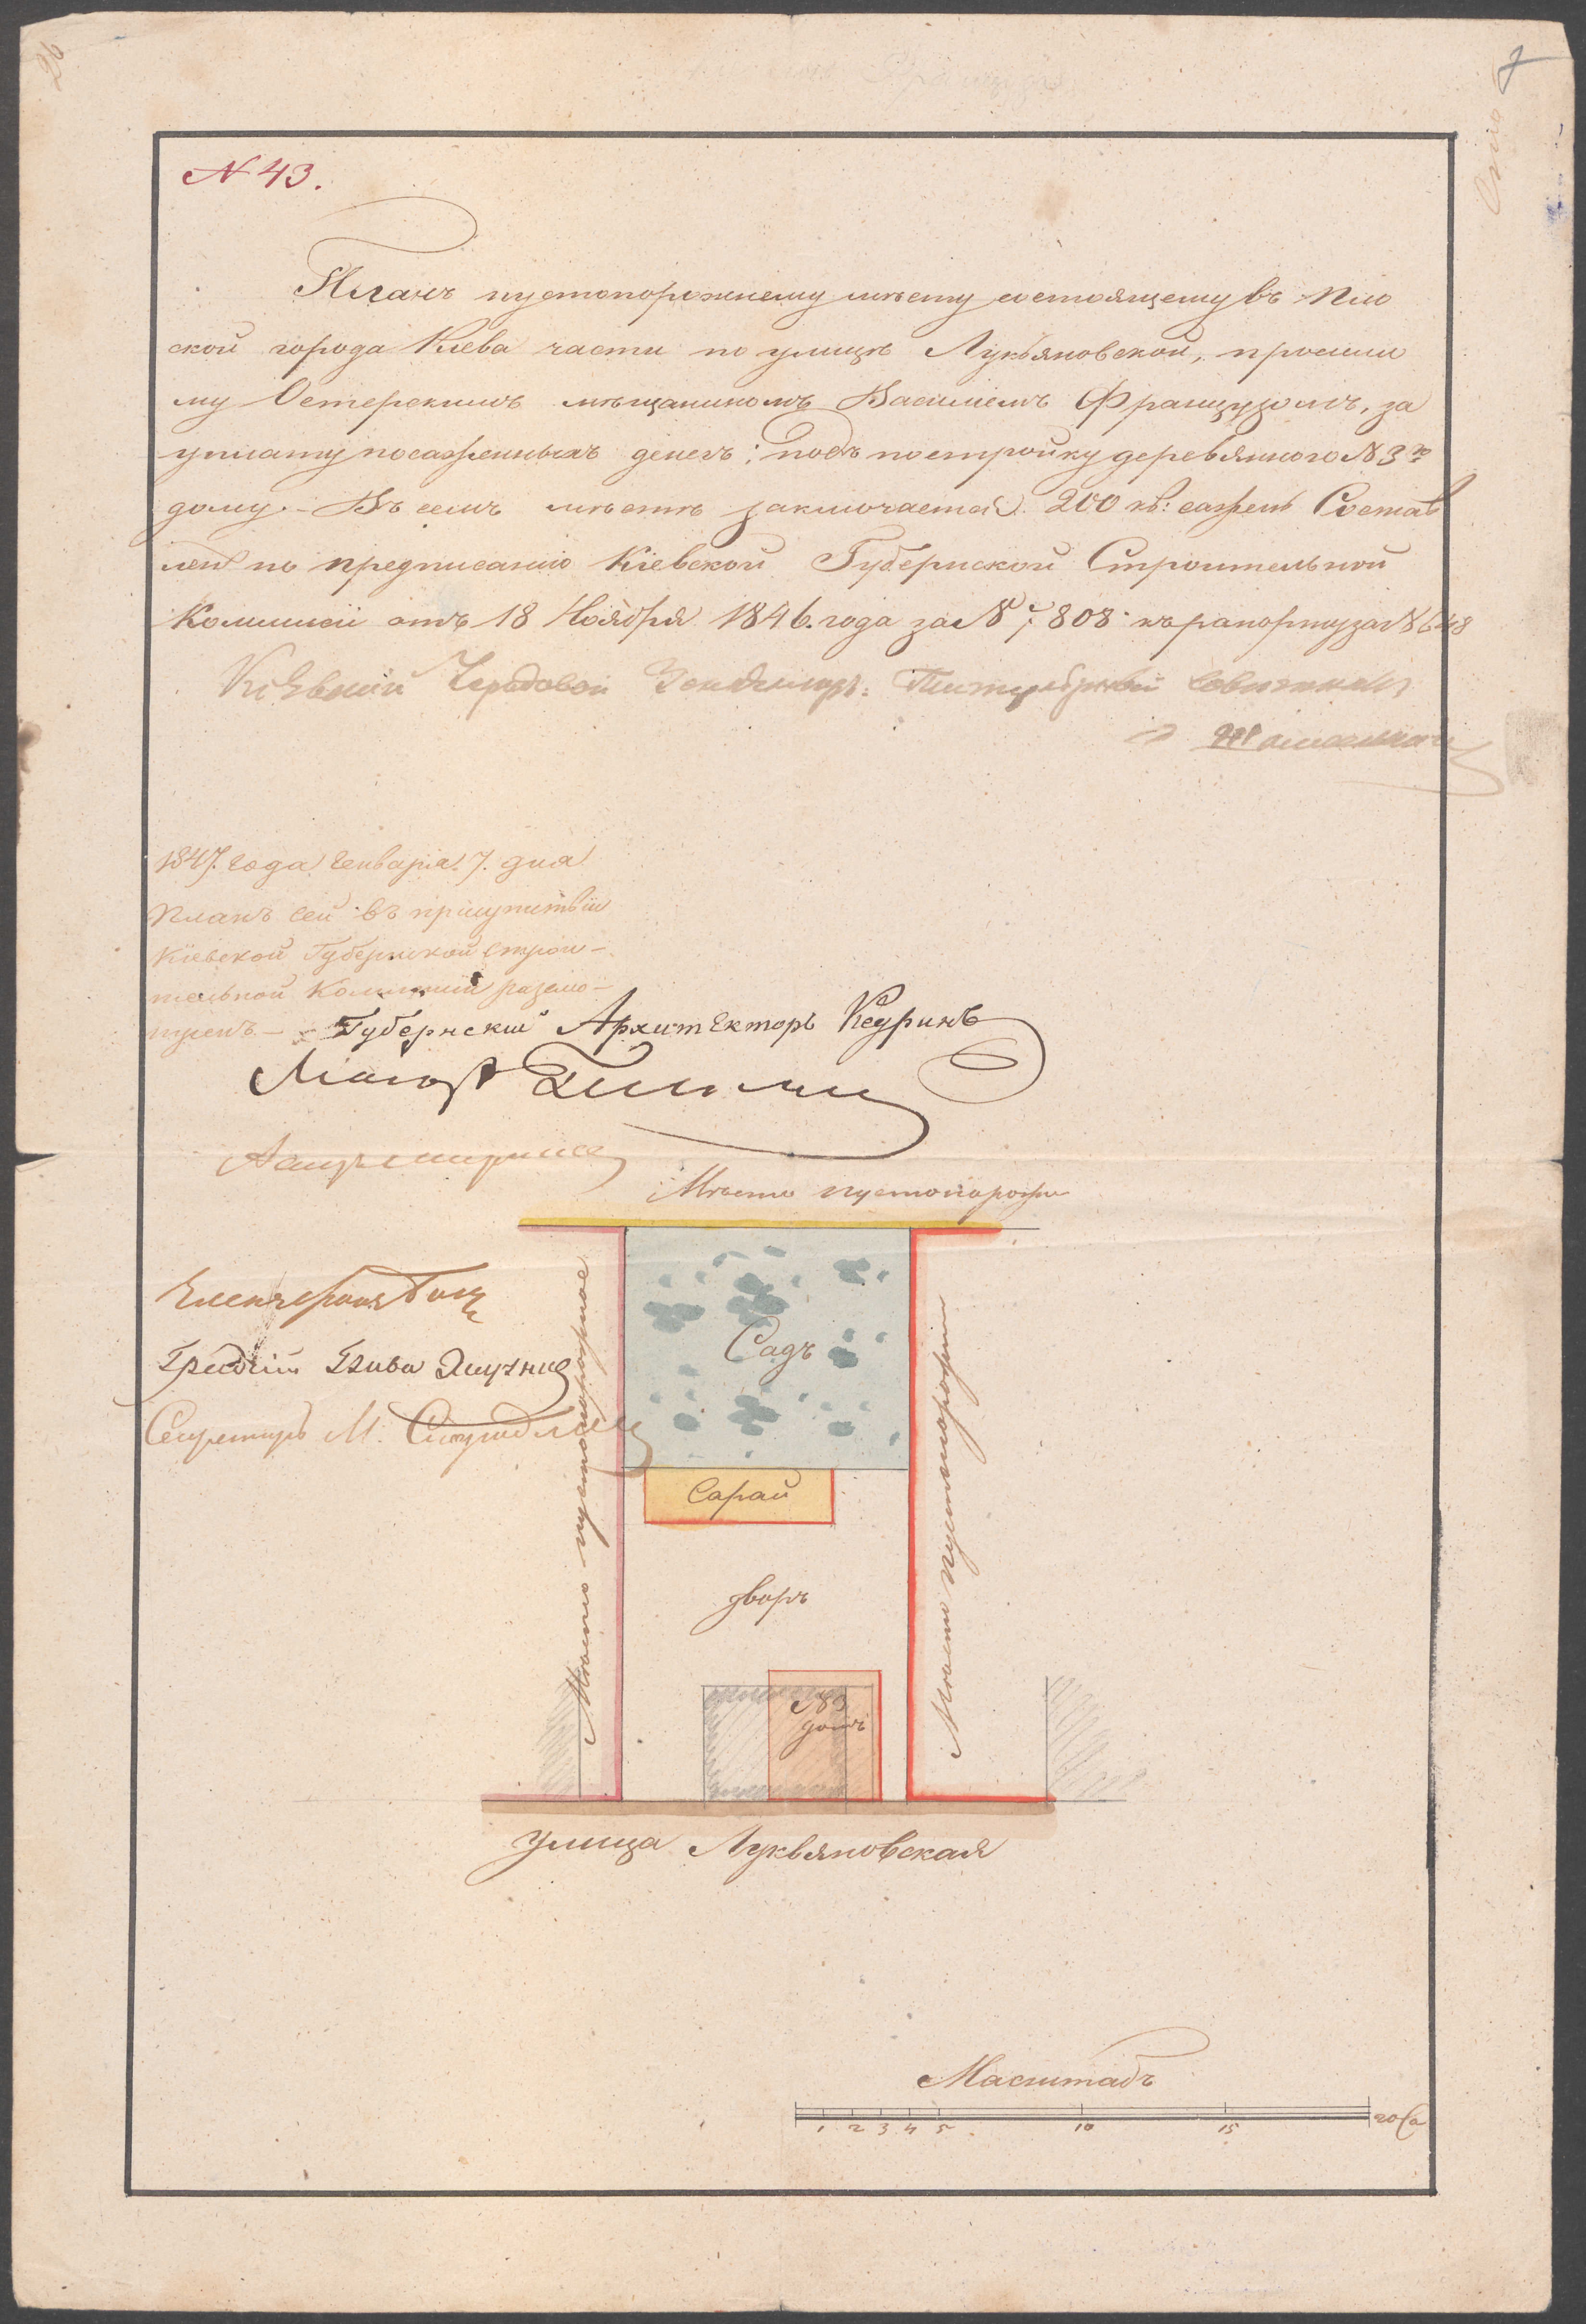 № 43.
Планъ пустопорожнему мѣсту состоящему въ Пло
ской города Кіева части по улицѣ Лукьяновской, просимо
му Остерскимъ мѣщаниномъ Василіемъ Французомъ, за
уплату посаженныхъ денегъ; подъ постройку деревянного № 3го
дому. – Въ семъ мѣстѣ заключается 200 кв: сажень Состав
ленъ по предписанію Кіевской Губернской Строительной
Коммисіи отъ 18 Ноября 1846. года за № 7,808 къ рапорту за № 648
Кіевскій Городовой
1847. года Генваря 7. дня
Планъ сей въ присутствіи
Кіевской Губернской Строи-
тельной Коммисіи разсмо-
трѣнъ –
Губернскій Архитекторъ
Мѣсто пустопорожне
Секретарь М.
Садъ
Мѣсто пустопорожнее
Мѣсто пустопорожне
Сарай
дворъ
№ 3
домъ
улица Лукьяновская
Масштабъ
1 2 3 4 5 10 15 20 Са